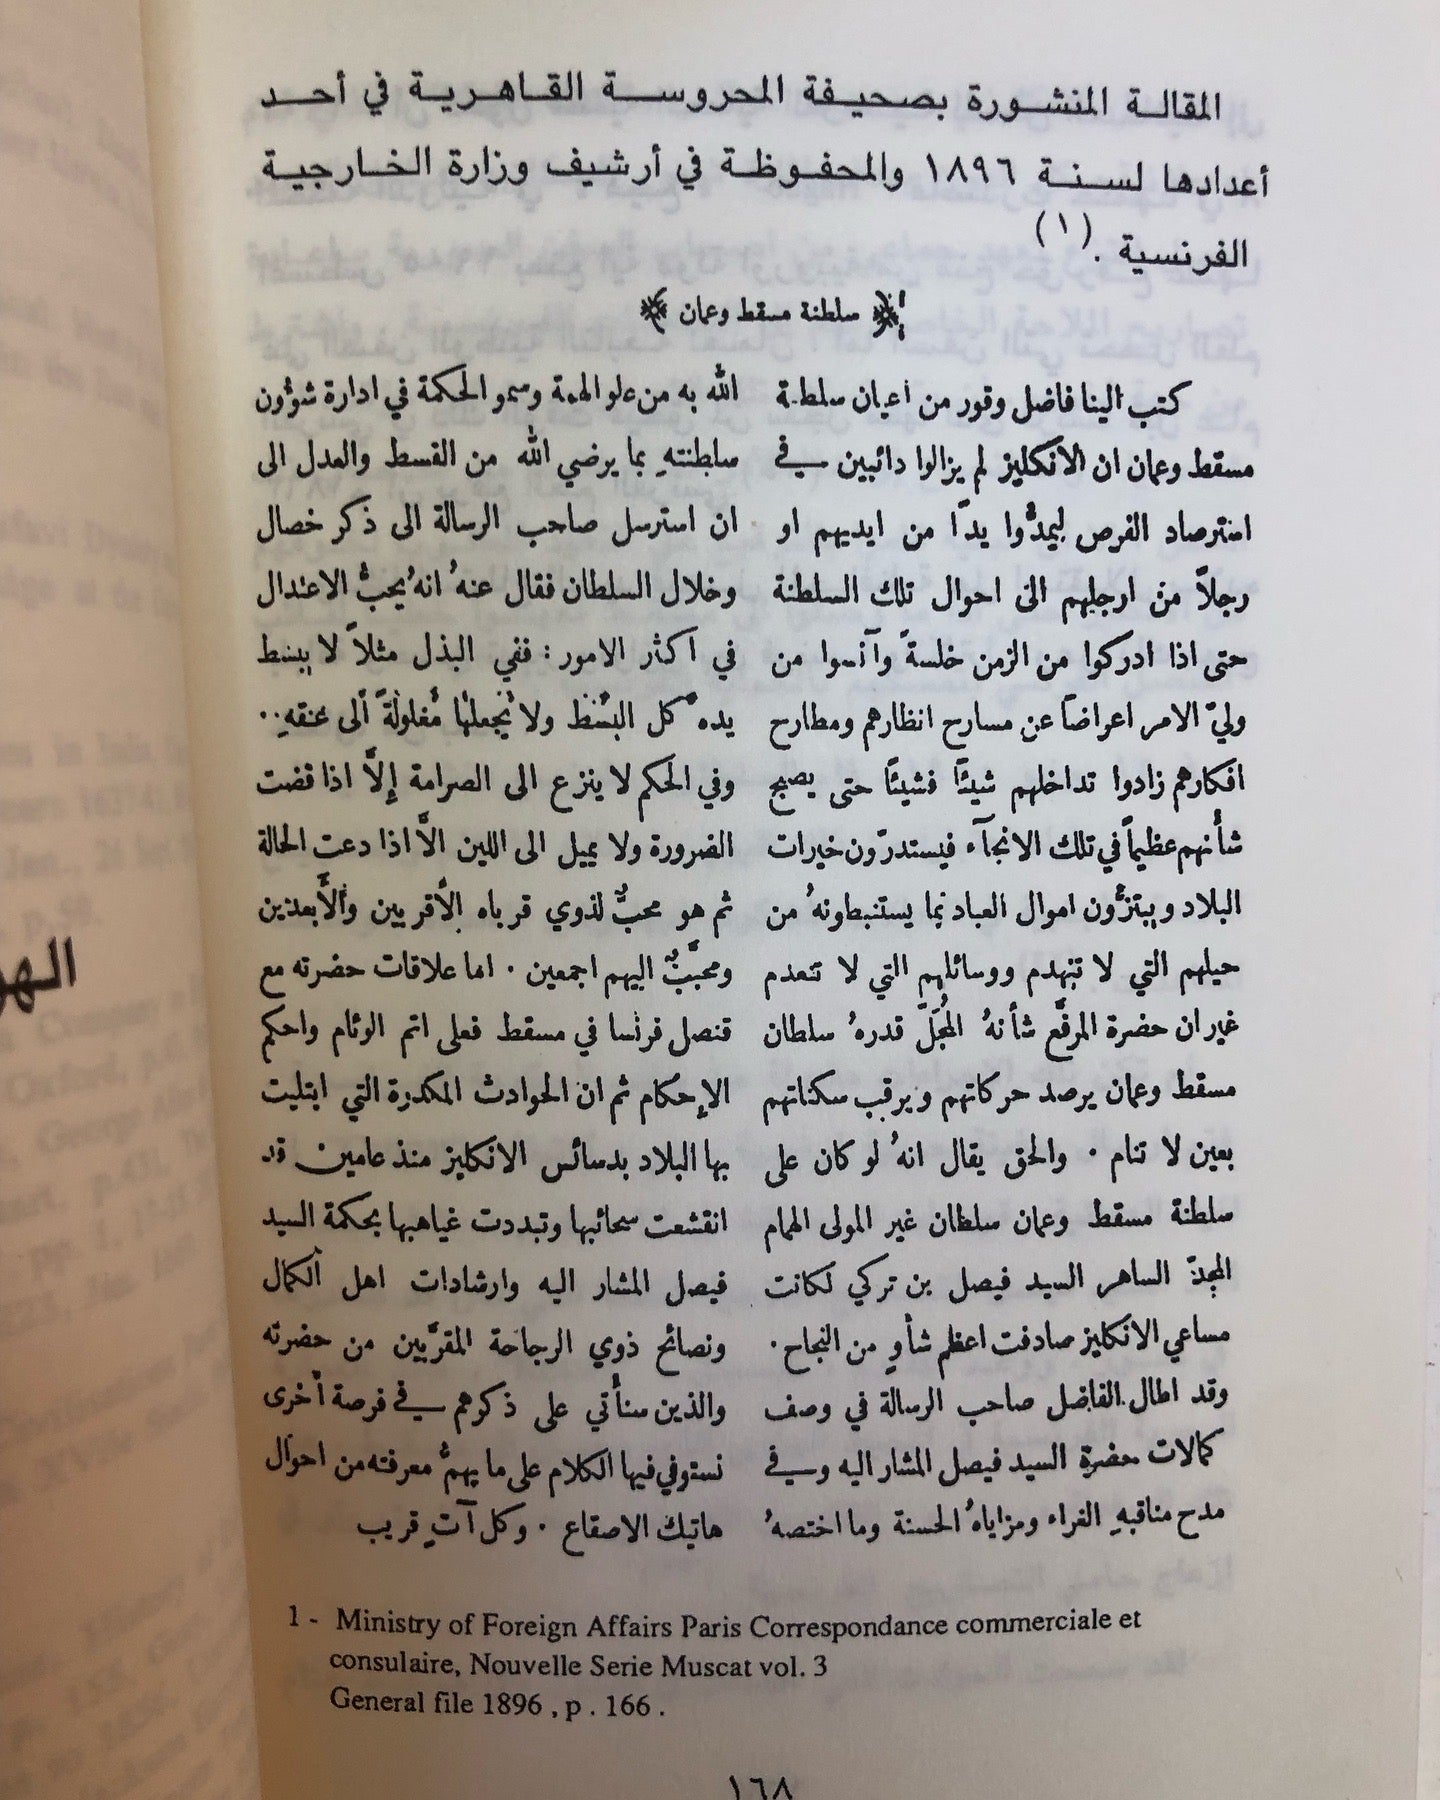 المقالة المنشورة بصحيفة المحروسة القاهرية في أحد
أعدادها لسنة ١٨٩٦ والمحفوظة في أرشيف وزارة الخارجية
الفرنسية . (١)
سلطنة مسقط وعمان
كتب الينا فاضل وقور من اعيان سلطنة
مسقط وعمان ان الانكليز لم يزالوا دائبين في
استرصاد الفرص ليمدُّوا يدًا من ايديهم او
رجلاً من ارجلهم الى احوال تلك السلطنة
حتى اذا ادركوا من الزمن خلسةً وآنسوا من
وليّ الامر اعراضاً عن مسارح انظارهم ومطارح
افكارهم زادوا تداخلهم شيئًا فشيئًا حتى يصبح
شأنهم عظيماً في تلك الانحآء فيستدرّون خيرات
البلاد ويبتزُّون اموال العباد بما يستنبطونهُ من
حيلهم التي لا تنهدم ووسائلهم التي لا تنعدم
غير ان حضرة المرفَّع شأنهُ المُجلّ قدرهُ سلطان
مسقط وعمان يرصد حركاتهم ويرقب سكناتهم
بعين لا تنام . والحق يقال انهُ لو كان على
سلطنة مسقط وعمان سلطان غير المولى الهمام
المجدّ الساهر السيد فيصل بن تركي لكانت
مساعي الانكليز صادفت اعظم شأوٍ من النجاح .
وقد اطال الفاضل صاحب الرسالة في وصف
كمالات حضرة السيد فيصل المشار اليه وفي
مدح مناقبهِ الغراء ومزاياهُ الحسنة وما اختصهُ
الله به من علو الهمة وسمو الحكمة في ادارة شوؤن
سلطنتهِ بما يرضي الله من القسط والعدل الى
ان استرسل صاحب الرسالة الى ذكر خصال
وخلال السلطان فقال عنهُ انهُ يحبُّ الاعتدال
في اكثر الامور : ففي البذل مثلاً لا يبسط
يدهُ كل البسط ولا يجعلها مغلولةً الى عنقهِ ..
وفي الحكم لا ينزع الى الصرامة إلاَّ اذا قضت
الضرورة ولا يميل الى اللين الاَّ اذا دعت الحالة
ثم هو محبٌّ لذوي قرباه الأقربين والأبعدين
ومحبَّبٌ اليهم اجمعين . اما علاقات حضرته مع
قنصل فرنسا في مسقط فعلى اتم الوئام واحكم
الإحكام ثم ان الحوادث المكدرة التي ابتليت
بها البلاد بدسائس الانكليز منذ عامين قد
انقشعت سحائبها وتبددت غياهبها بحكمة السيد
فيصل المشار اليه وارشادات اهل الكمال
ونصائح ذوي الرجاحة المقرَّبين من حضرته
والذين سنأتي على ذكرهم في فرصة أخرى
نستوفي فيها الكلام على ما يهمُّ معرفته من احوال
هاتيك الاصقاع . وكل آتٍ قريب
1 - Ministry of Foreign Affairs Paris Correspondance commerciale et
consulaire, Nouvelle Serie Muscat vol. 3
General file 1896 , p . 166 .
١٦٨